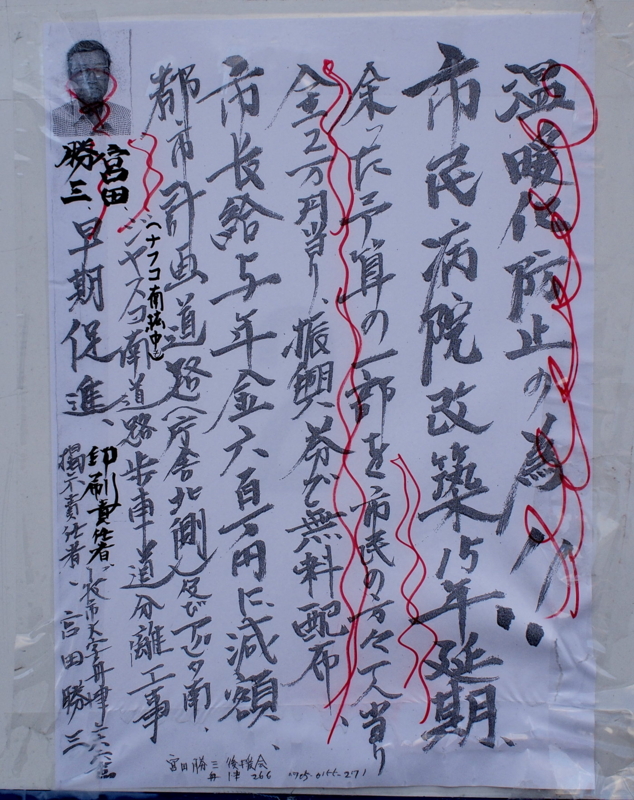 温暖化防止の為!!
市民病院改築15年延期、
余った予算の一部を市民の方々一人当り
全2万円当り、振興券で無料配布、
市長給与年金六百万円に減額、
都市計画道路(庁舎北側)及びアピタ南、
(ナフコ南 中)
ジャスコ南道路歩車道分離工事
早期促進、
宮田
勝三
印刷責任者
掲示責任者、宮田勝三
宮田勝三後援会
舟津 266